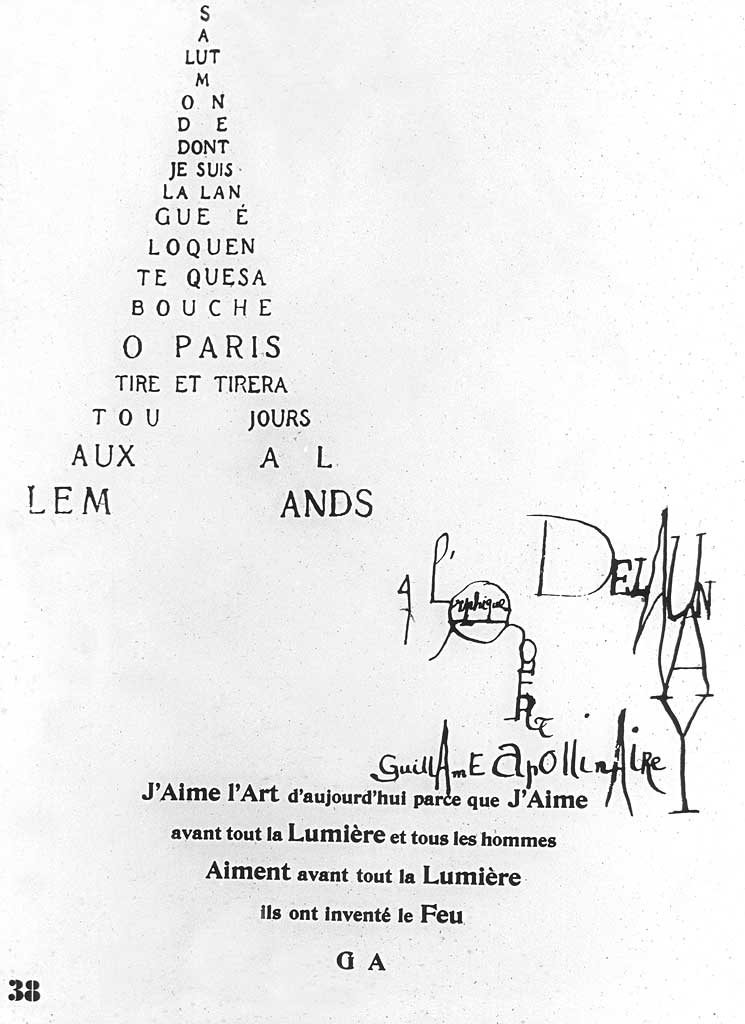 S
A
LUT
M
O N
D E
DONT
JE SUIS
LA LAN
GUE É
LOQUEN
TE QUESA
BOUCHE
O PARIS
TIRE ET TIRERA
TOU JOURS
AUX A L
LEM ANDS
A l'Orphique
ROBERT
DELAUNAY
Guillaume Apollinaire
J'Aime l'Art d'aujourd'hui parce que J'Aime
avant tout la Lumière et tous les hommes
Aiment avant tout la Lumière
ils ont inventé le Feu
G A
38